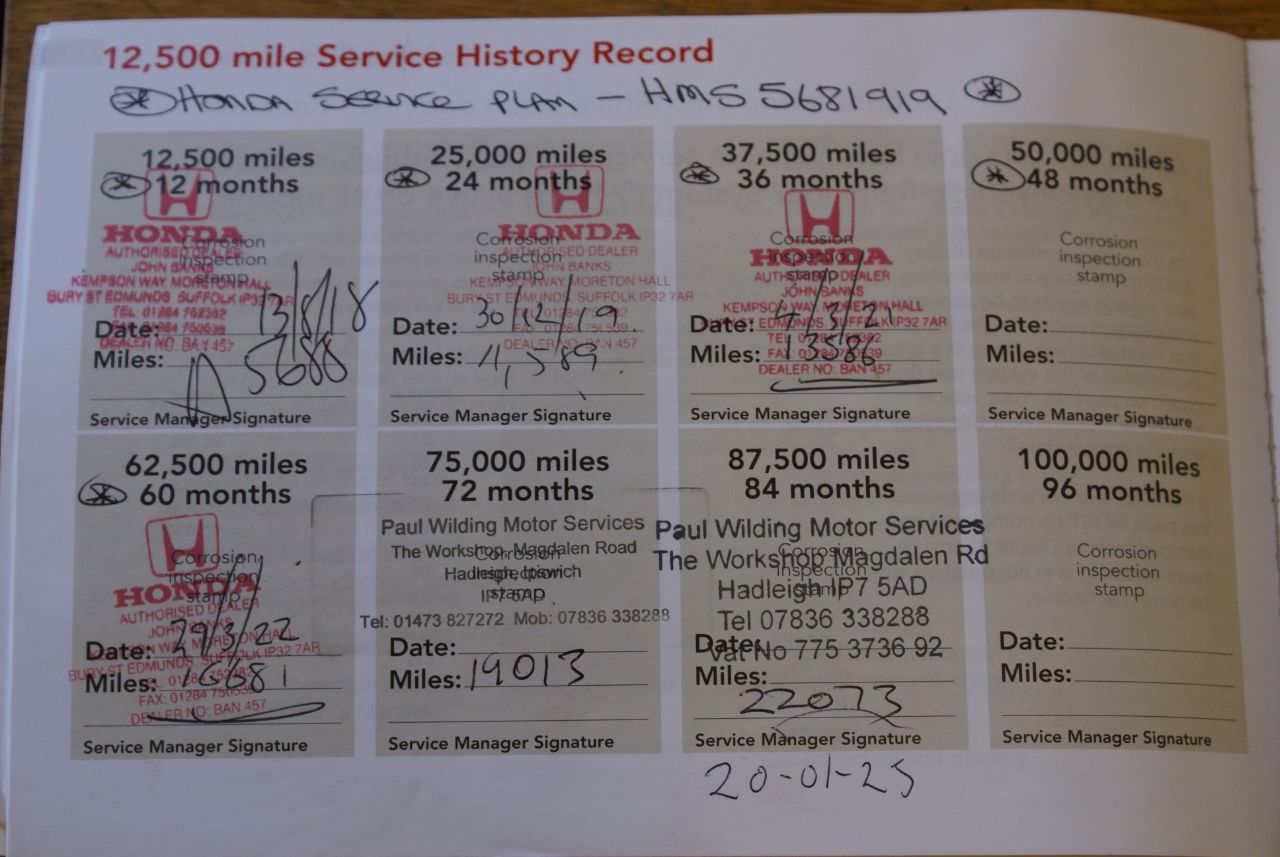 12,500 mile Service History Record
HONDA SERVICE PLAN - HMS 5681919
12,500 miles
12 months
HONDA
Corrosion
AUTHORISED DEALER
inspection
JOHN BANKS
stamp
KEMPSON WAY, MORETON HALL
BURY ST EDMUNDS, SUFFOLK IP32 7AR
TEL: 01284 752382
Date: 13/8/18
DEALER NO: BAN 457
Miles: 5688
Service Manager Signature
25,000 miles
24 months
HONDA
Corrosion
AUTHORISED DEALER
inspection
JOHN BANKS
stamp
KEMPSON WAY, MORETON HALL
BURY ST EDMUNDS, SUFFOLK IP32 7AR
Date: 30/12/19
DEALER NO: BAN 457
Miles: 11,589.
Service Manager Signature
37,500 miles
36 months
Corrosion
HONDA
inspection
AUTHORISED DEALER
stamp
JOHN BANKS
KEMPSON WAY, MORETON HALL
BURY ST EDMUNDS, SUFFOLK IP32 7AR
Date: 4/3/21
Miles: 13586
DEALER NO: BAN 457
Service Manager Signature
50,000 miles
48 months
Corrosion
inspection
stamp
Date:
Miles:
Service Manager Signature
62,500 miles
60 months
Corrosion
inspection
HONDA
stamp
AUTHORISED DEALER
JOHN BANKS
KEMPSON WAY, MORETON HALL
BURY ST EDMUNDS, SUFFOLK IP32 7AR
Date: 29/3/22
Miles: 16681
DEALER NO: BAN 457
Service Manager Signature
75,000 miles
72 months
Paul Wilding Motor Services
The Workshop, Magdalen Road
Corrosion
Hadleigh, Ipswich
inspection
stamp
Tel: 01473 827272 Mob: 07836 338288
Date:
Miles: 19013
Service Manager Signature
87,500 miles
84 months
Paul Wilding Motor Services
The Workshop Magdalen Rd
Corrosion
inspection
Hadleigh IP7 5AD
stamp
Tel 07836 338288
Date:
Vat No 775 3736 92
Miles:
22073
Service Manager Signature
20-01-25
100,000 miles
96 months
Corrosion
inspection
stamp
Date:
Miles:
Service Manager Signature